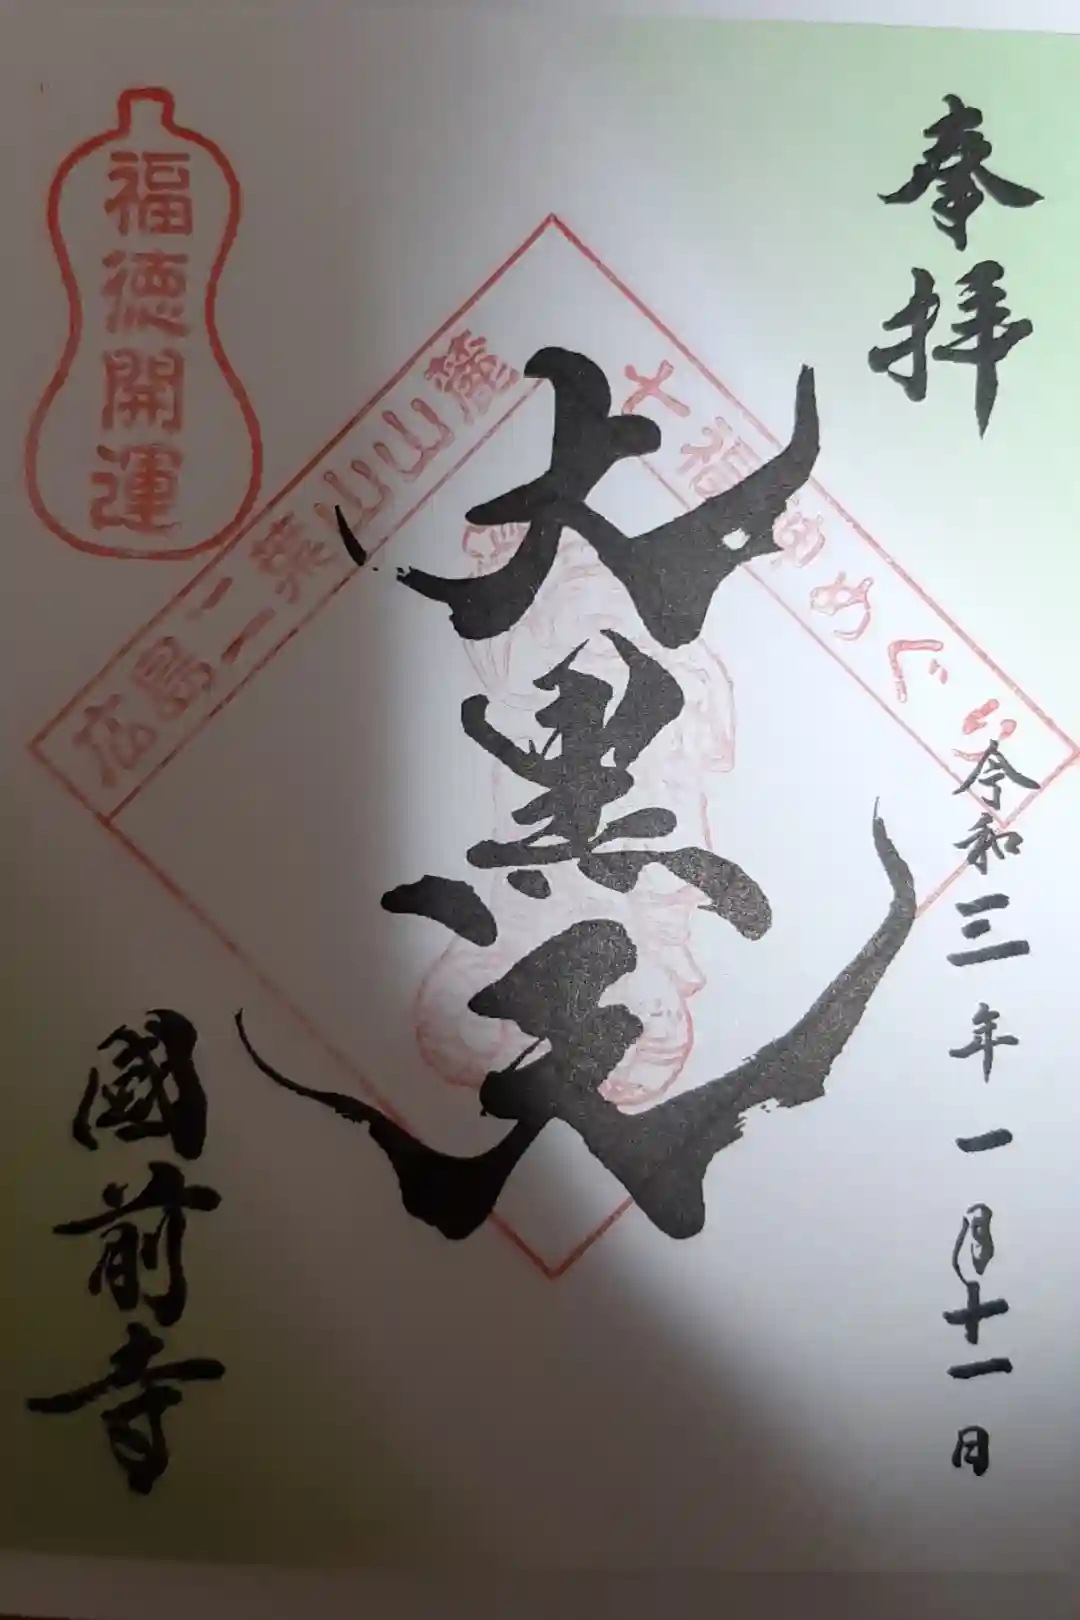 奉拝
令和三年一月十一日
七福神めぐり
大黒天
広島二葉山山麓
福徳開運
國前寺